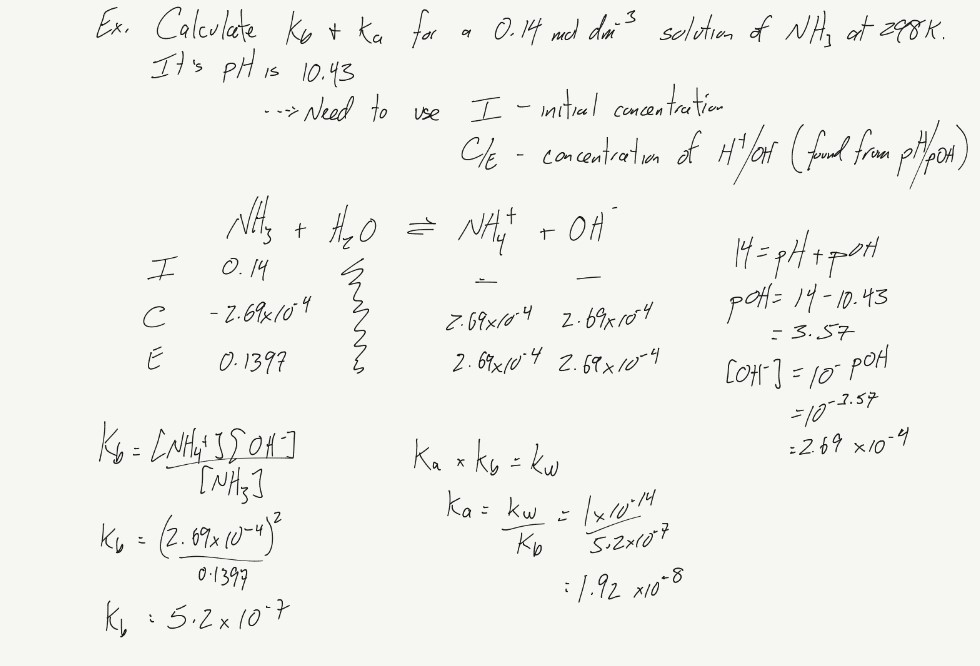 Ex. Calculate Kb + Ka for a 0.14 mol dm⁻³ solution of NH₃ at 298K.
It's pH is 10.43
---> Need to use I - initial concentration
C/E - concentration of H⁺/OH⁻ (found from pH/pOH)
NH₃ + H₂O ⇌ NH₄⁺ + OH⁻
I 0.14 – –
C -2.69x10⁻⁴ 2.69x10⁻⁴ 2.69x10⁻⁴
E 0.1397 2.69x10⁻⁴ 2.69x10⁻⁴
14 = pH + pOH
pOH = 14 - 10.43
= 3.57
[OH⁻] = 10⁻ᵖᴼᴴ
= 10⁻³·⁵⁷
= 2.69 x10⁻⁴
Kb = [NH₄⁺][OH⁻]
[NH₃]
Kb = (2.69x10⁻⁴)²
0.1397
Kb = 5.2 x 10⁻⁷
Ka x Kb = Kw
Ka = Kw = 1x10⁻¹⁴
Kb 5.2x10⁻⁷
= 1.92 x10⁻⁸